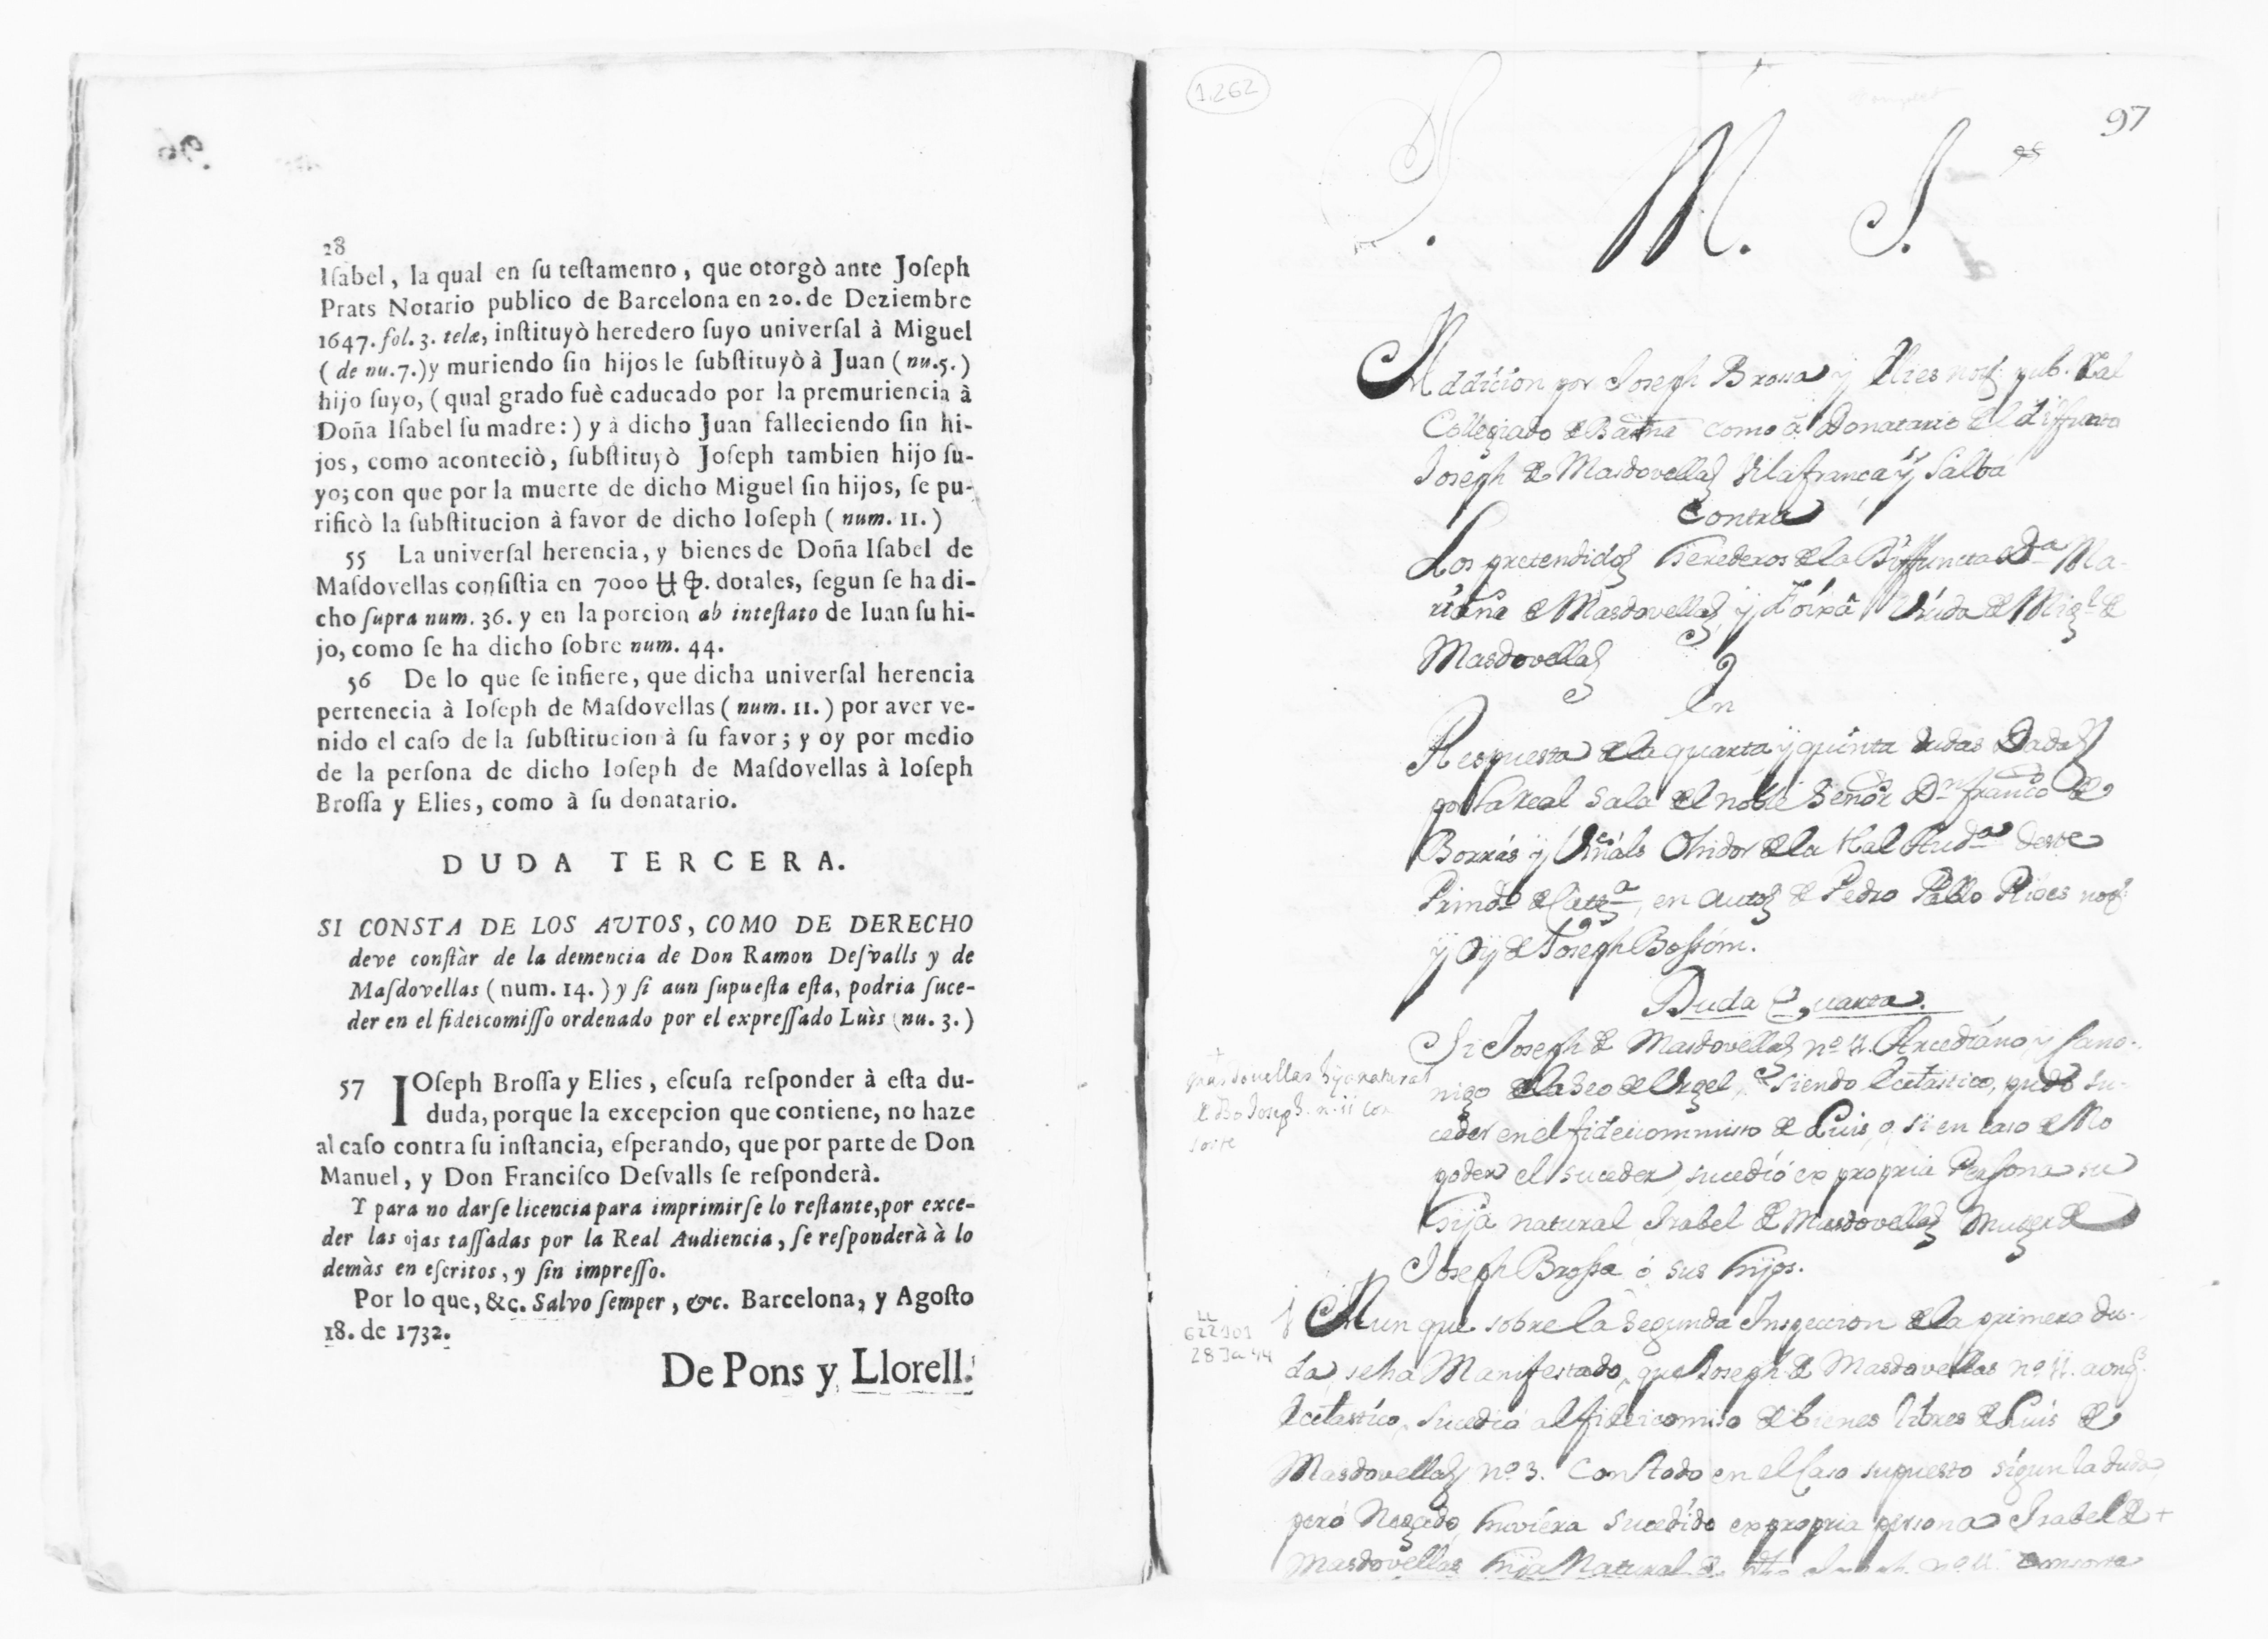 28
Iſabel, la qual en ſu teſtamento, que otorgò ante Joſeph
Prats Notario publico de Barcelona en 20. de Deziembre
1647. fol. 3. telæ, inſtituyò heredero ſuyo univerſal à Miguel
( de nu. 7.) y muriendo ſin hijos le ſubſtituyò à Juan ( nu. 5. )
hijo ſuyo, ( qual grado fuè caducado por la premuriencia à
Doña Iſabel ſu madre: ) y à dicho Juan falleciendo ſin hi-
jos, como aconteciò, ſubſtituyò Joſeph tambien hijo ſu-
yo; con que por la muerte de dicho Miguel ſin hijos, ſe pu-
rificò la ſubſtitucion à favor de dicho Ioſeph ( num. 11. )
55 La univerſal herencia, y bienes de Doña Iſabel de
Maſdovellas conſiſtia en 7000 dotales, ſegun ſe ha di-
cho ſupra num. 36. y en la porcion ab inteſtato de Iuan ſu hi-
jo, como ſe ha dicho ſobre num. 44.
56 De lo que ſe infiere, que dicha univerſal herencia
pertenecia à Ioſeph de Maſdovellas ( num. 11. ) por aver ve-
nido el caſo de la ſubſtitucion à ſu favor; y oy por medio
de la perſona de dicho Ioſeph de Maſdovellas à Ioſeph
Broſſa y Elies, como à ſu donatario.
DUDA TERCERA.
SI CONSTA DE LOS AUTOS, COMO DE DERECHO
deve conſtàr de la demencia de Don Ramon Deſvalls y de
Maſdovellas ( num. 14. ) y ſi aun ſupueſta eſta, podria ſuce-
der en el fideicomiſſo ordenado por el expreſſado Luìs ( nu. 3. )
57 IOſeph Broſſa y Elies, eſcuſa reſponder à eſta du-
duda, porque la excepcion que contiene, no haze
al caſo contra ſu inſtancia, eſperando, que por parte de Don
Manuel, y Don Franciſco Deſvalls ſe reſponderà.
Y para no darſe licencia para imprimirſe lo reſtante, por exce-
der las ojas taſſadas por la Real Audiencia, ſe reſponderà à lo
demàs en eſcritos, y ſin impreſſo.
Por lo que, &c. Salvo ſemper, &c. Barcelona, y Agoſto
18. de 1732.
De Pons y Llorell.
1.262
97
J. M. J.
Addicion por Joseph Brossa y Elies notj. pub. Real
Collegiado de Barna como â Donatario del diffunto
Joseph de Masdovellas Vilafranca y Salbá
Contra
Los pretendidos herederos de la Diffuncta Da. Ma-
riana de Masdovellas, y Foixâ Viuda de Migl. de
Masdovellas
En
Respuesta de la quarta y quinta dudas Dadas
por la Real Sala del noble Señor Dn. franco. de
Borrás y Viñals Ohidor de la Real Auda. deste
Prindo. de Catta., en autos de Pedro Pablo Ribes notj.
y oy de Joseph Bossóm.
Duda Quarta.
Si Joseph de Masdovellas no. 11. Arcediano, y Cano-
nigo de la Seo de Urgel, siendo Ecctastico, pudo su-
ceder en el fideicommisso de Luis, o, si en caso de No
poder el suceder, sucedió ex propria Persona su
hija natural Isabel de Masdovellas Muger de
Joseph Brossa ó sus hijos.
Masdovellas hija natural
de Dn Joseph n. 11 con
sorte
1 Aunque sobre la segunda Inspeccion de la primera du-
da, se ha Manifestado, que Joseph de Masdovellas no. 11. aunq.
Ecctastico, sucedió al fideicomiso de bienes libres de Luis de
Masdovellas no. 3. Con todo en el Caso supuesto sigun la duda
peró Negado, huviéra sucedido ex propria persona Isabel de +
Masdovellas hija Natural de dho Joseph no. 11. consorte